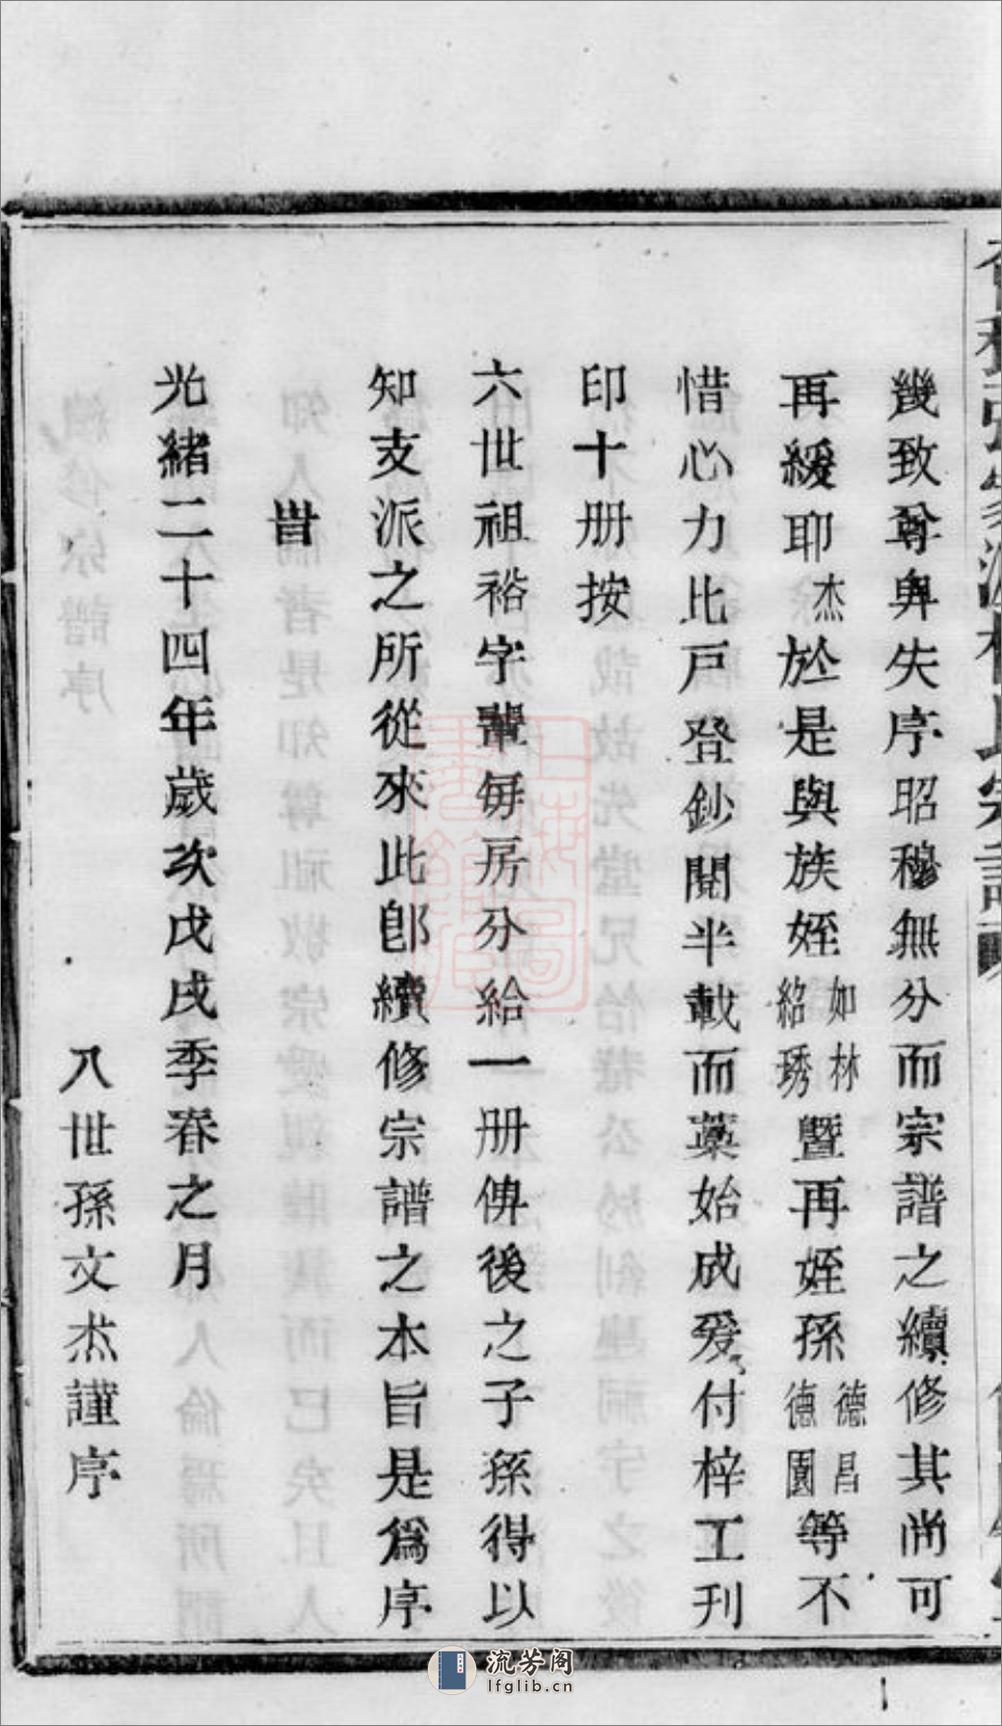 幾致尊卑失序昭穆無分而宗譜之續修其尚可
再緩耶杰於是與族姪如林紹琇暨再姪孫德昌德園等不
惜心力比戶登鈔閱半載而藁始成爰付梓工刊
印十册按
六世祖裕字輩每房分給一册傳後之子孫得以
知支派之所從來此卽續修宗譜之本旨是爲序
旹
光緒二十四年歲次戊戌季春之月
八世孫文杰謹序
流芳阁
lfglib.cn